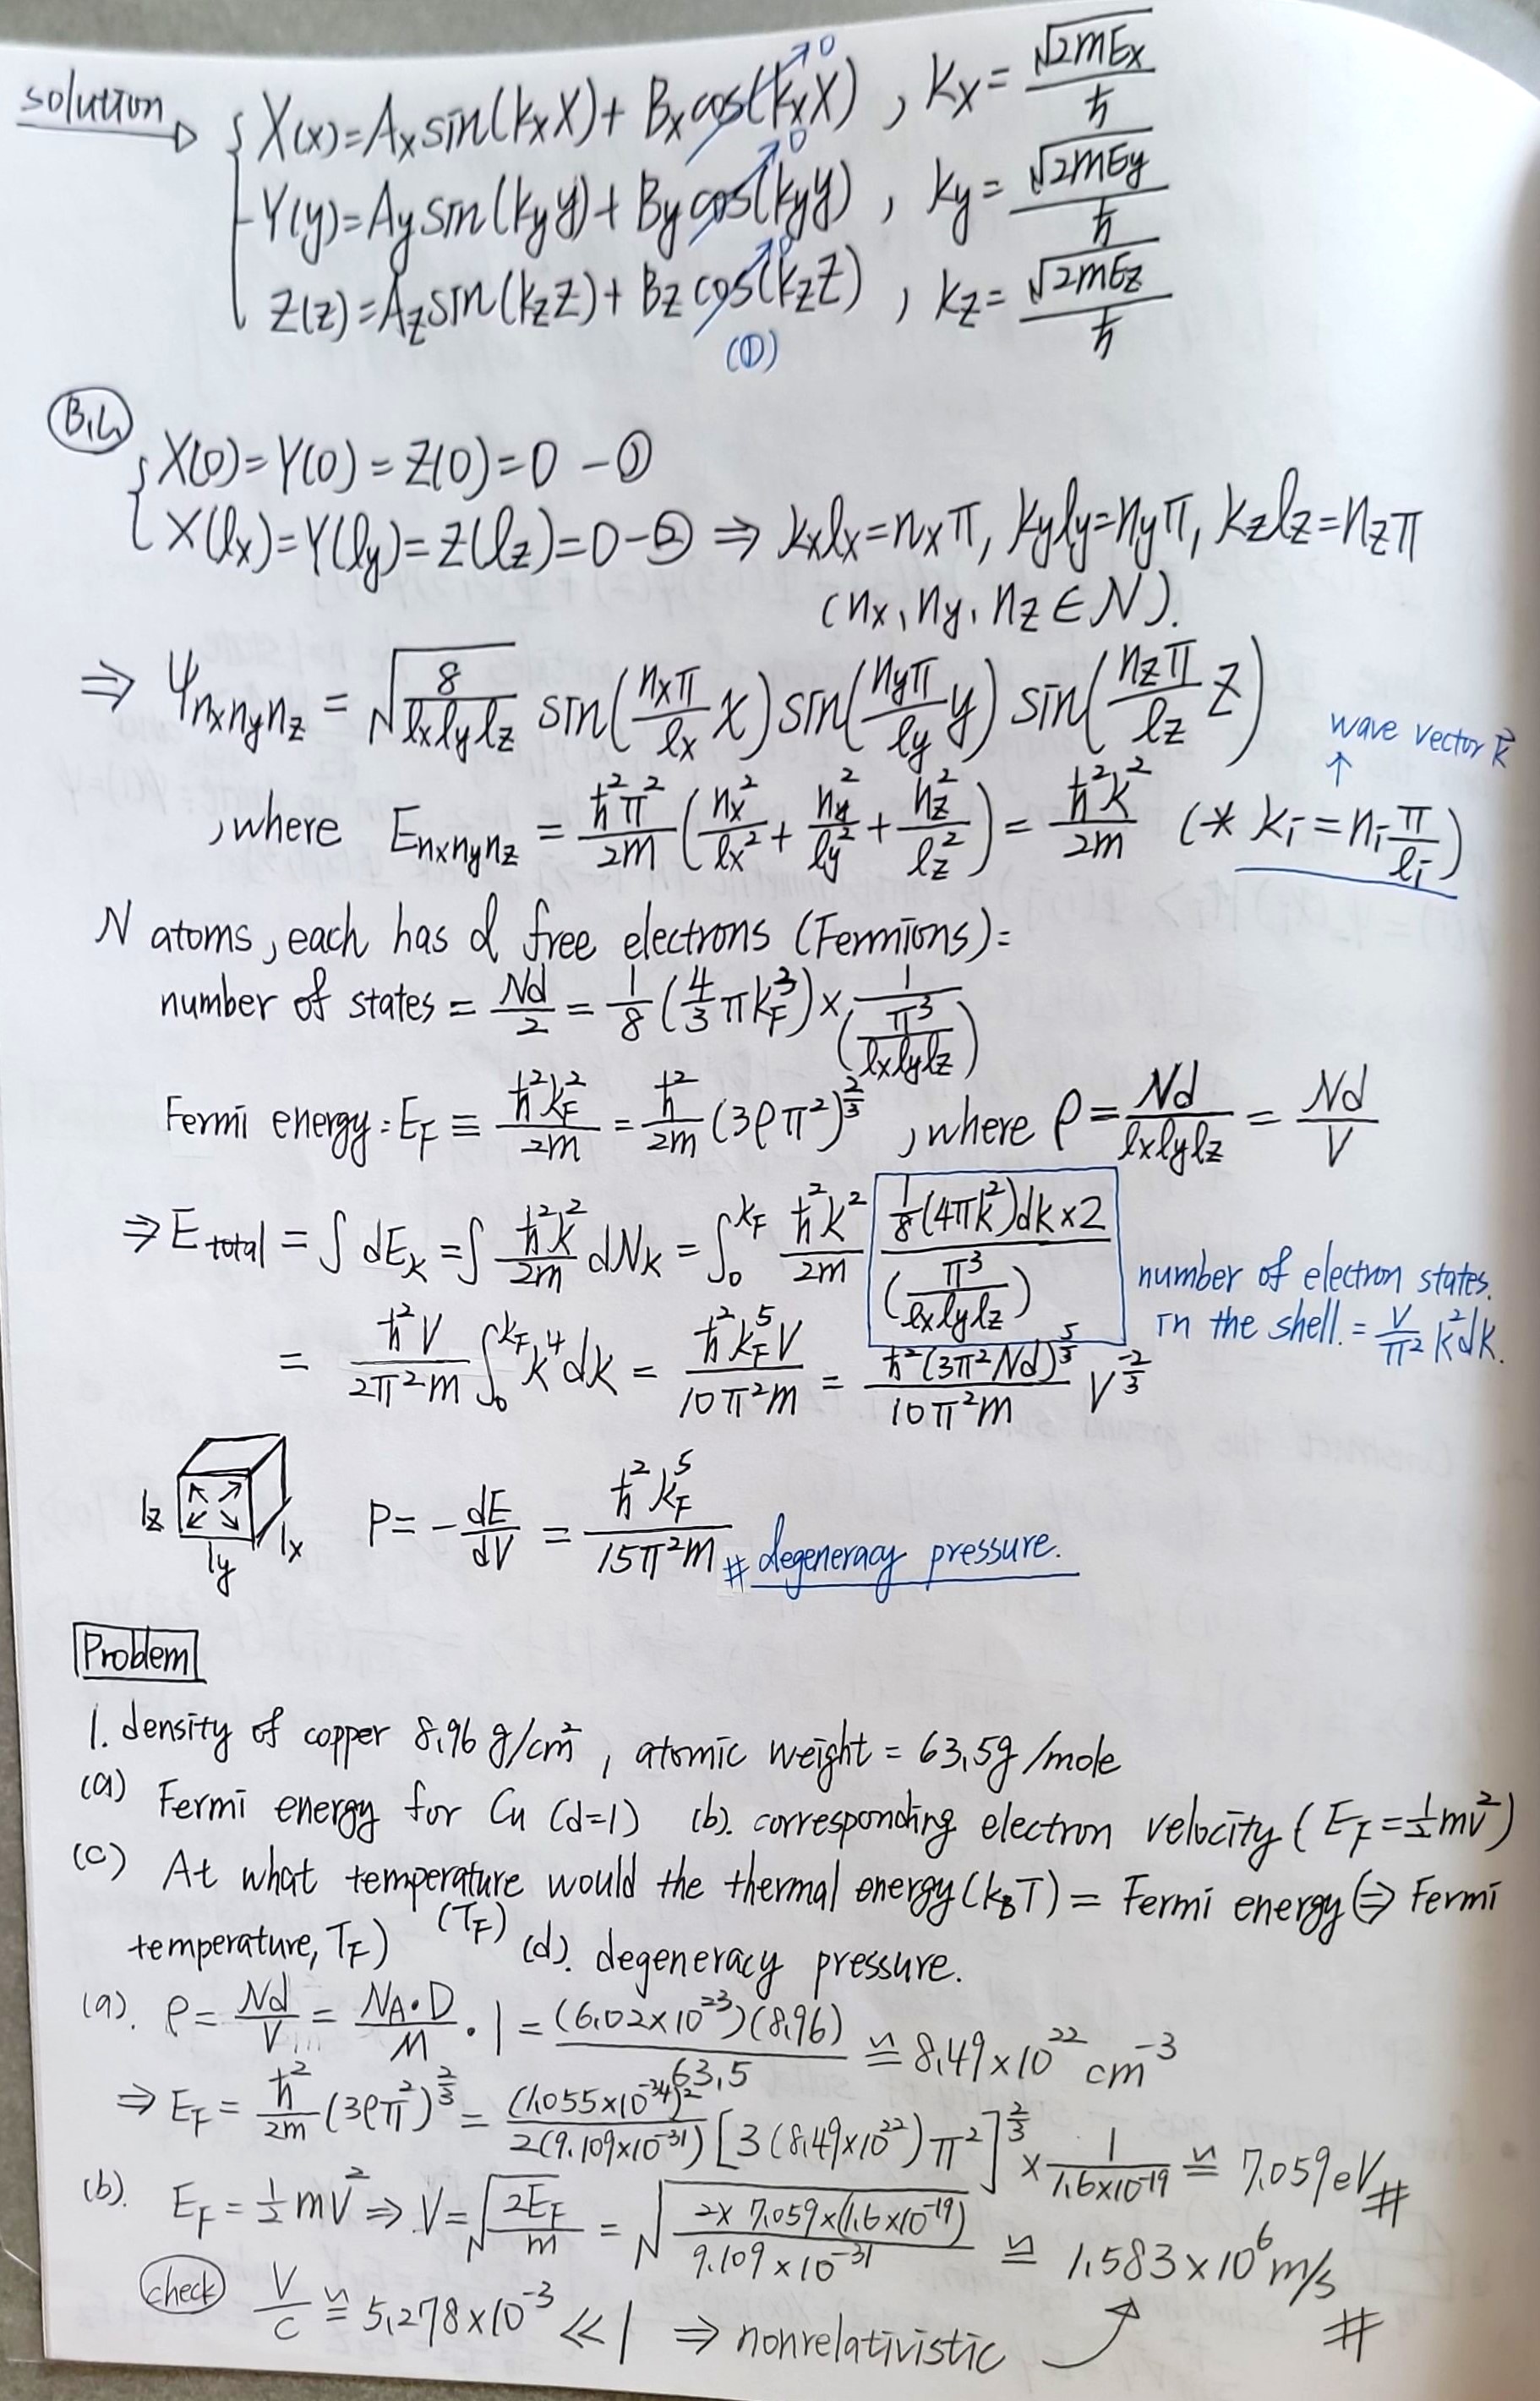 solution → { X(x)=Aₓsin(kₓx)+Bₓcos(kₓx)→0 , kₓ=√(2mEₓ)/ħ
Y(y)=A_y sin(k_y y)+B_y cos(k_y y)→0 , k_y=√(2mE_y)/ħ
Z(z)=A_z sin(k_z z)+B_z cos(k_z z)→0 , k_z=√(2mE_z)/ħ
(①)
{ X(0)=Y(0)=Z(0)=0 -①
X(lₓ)=Y(l_y)=Z(l_z)=0 -② ⇒ kₓlₓ=nₓπ, k_y l_y=n_yπ, k_z l_z=n_zπ
(nₓ, n_y, n_z ∈ N).
⇒ ψ_{nₓn_yn_z} = √(8/(lₓl_yl_z)) sin(nₓπ/lₓ x) sin(n_yπ/l_y y) sin(n_zπ/l_z z)
wave vector k⃗
↑
, where E_{nₓn_yn_z} = ħ²π²/2m (nₓ²/lₓ² + n_y²/l_y² + n_z²/l_z²) = ħ²k²/2m (* k_i = n_i π/l_i)
N atoms, each has d free electrons (Fermions):
number of states = Nd/2 = 1/8 (4/3 πk_F³) × 1/(π³/(lₓl_yl_z))
Fermi energy: E_F ≡ ħ²k_F²/2m = ħ²/2m (3ρπ²)^{2/3} , where ρ = Nd/(lₓl_yl_z) = Nd/V
⇒ E_total = ∫ dE_k = ∫ ħ²k²/2m dN_k = ∫₀^{k_F} ħ²k²/2m [1/8 (4πk²)dk×2]/(π³/(lₓl_yl_z))
number of electron states.
in the shell. = V/π² k²dk.
= ħ²V/(2π²m) ∫₀^{k_F} k⁴dk = ħ²k_F⁵V/(10π²m) = ħ²(3π²Nd)^{5/3}/(10π²m) V^{-2/3}
lz
ly
lx
P = -dE/dV = ħ²k_F⁵/(15π²m) # degeneracy pressure.
Problem
1. density of copper 8.96 g/cm² , atomic weight = 63.5g/mole
(a) Fermi energy for Cu (d=1) (b). corresponding electron velocity (E_F=½mv²)
(c) At what temperature would the thermal energy (k_BT) = Fermi energy (⇒ Fermi
temperature, T_F) (T_F) (d). degeneracy pressure.
(a). ρ = Nd/V = N_A·D/M · 1 = (6.02×10²³)(8.96)/63.5 ≌ 8.49×10²² cm⁻³
⇒ E_F = ħ²/2m (3ρπ²)^{2/3} = (1.055×10⁻³⁴)²/(2(9.109×10⁻³¹)) [3(8.49×10²²)π²]^{2/3} × 1/(1.6×10⁻¹⁹) ≌ 7.059eV #
(b). E_F = ½mv² ⇒ V = √(2E_F/m) = √(2×7.059×(1.6×10⁻¹⁹)/(9.109×10⁻³¹)) ≌ 1.583×10⁶ m/s #
check V/C ≌ 5.278×10⁻³ ≪ 1 ⇒ nonrelativistic